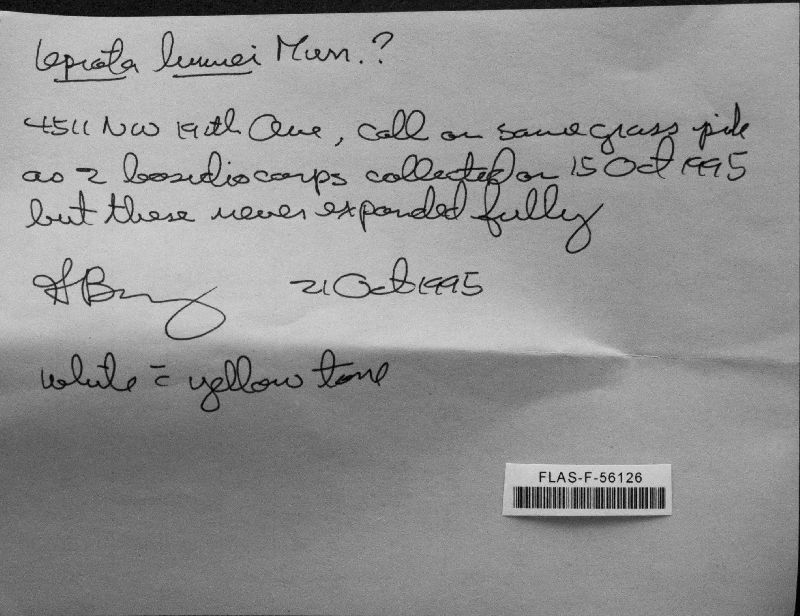 Lepiota humei Murr.?
4511 NW 19th Ave, Coll on same grass pile
as 2 basidiocarps collected on 15 Oct 1995
but these never expanded fully
21 Oct 1995
white = yellow tone
FLAS-F-56126